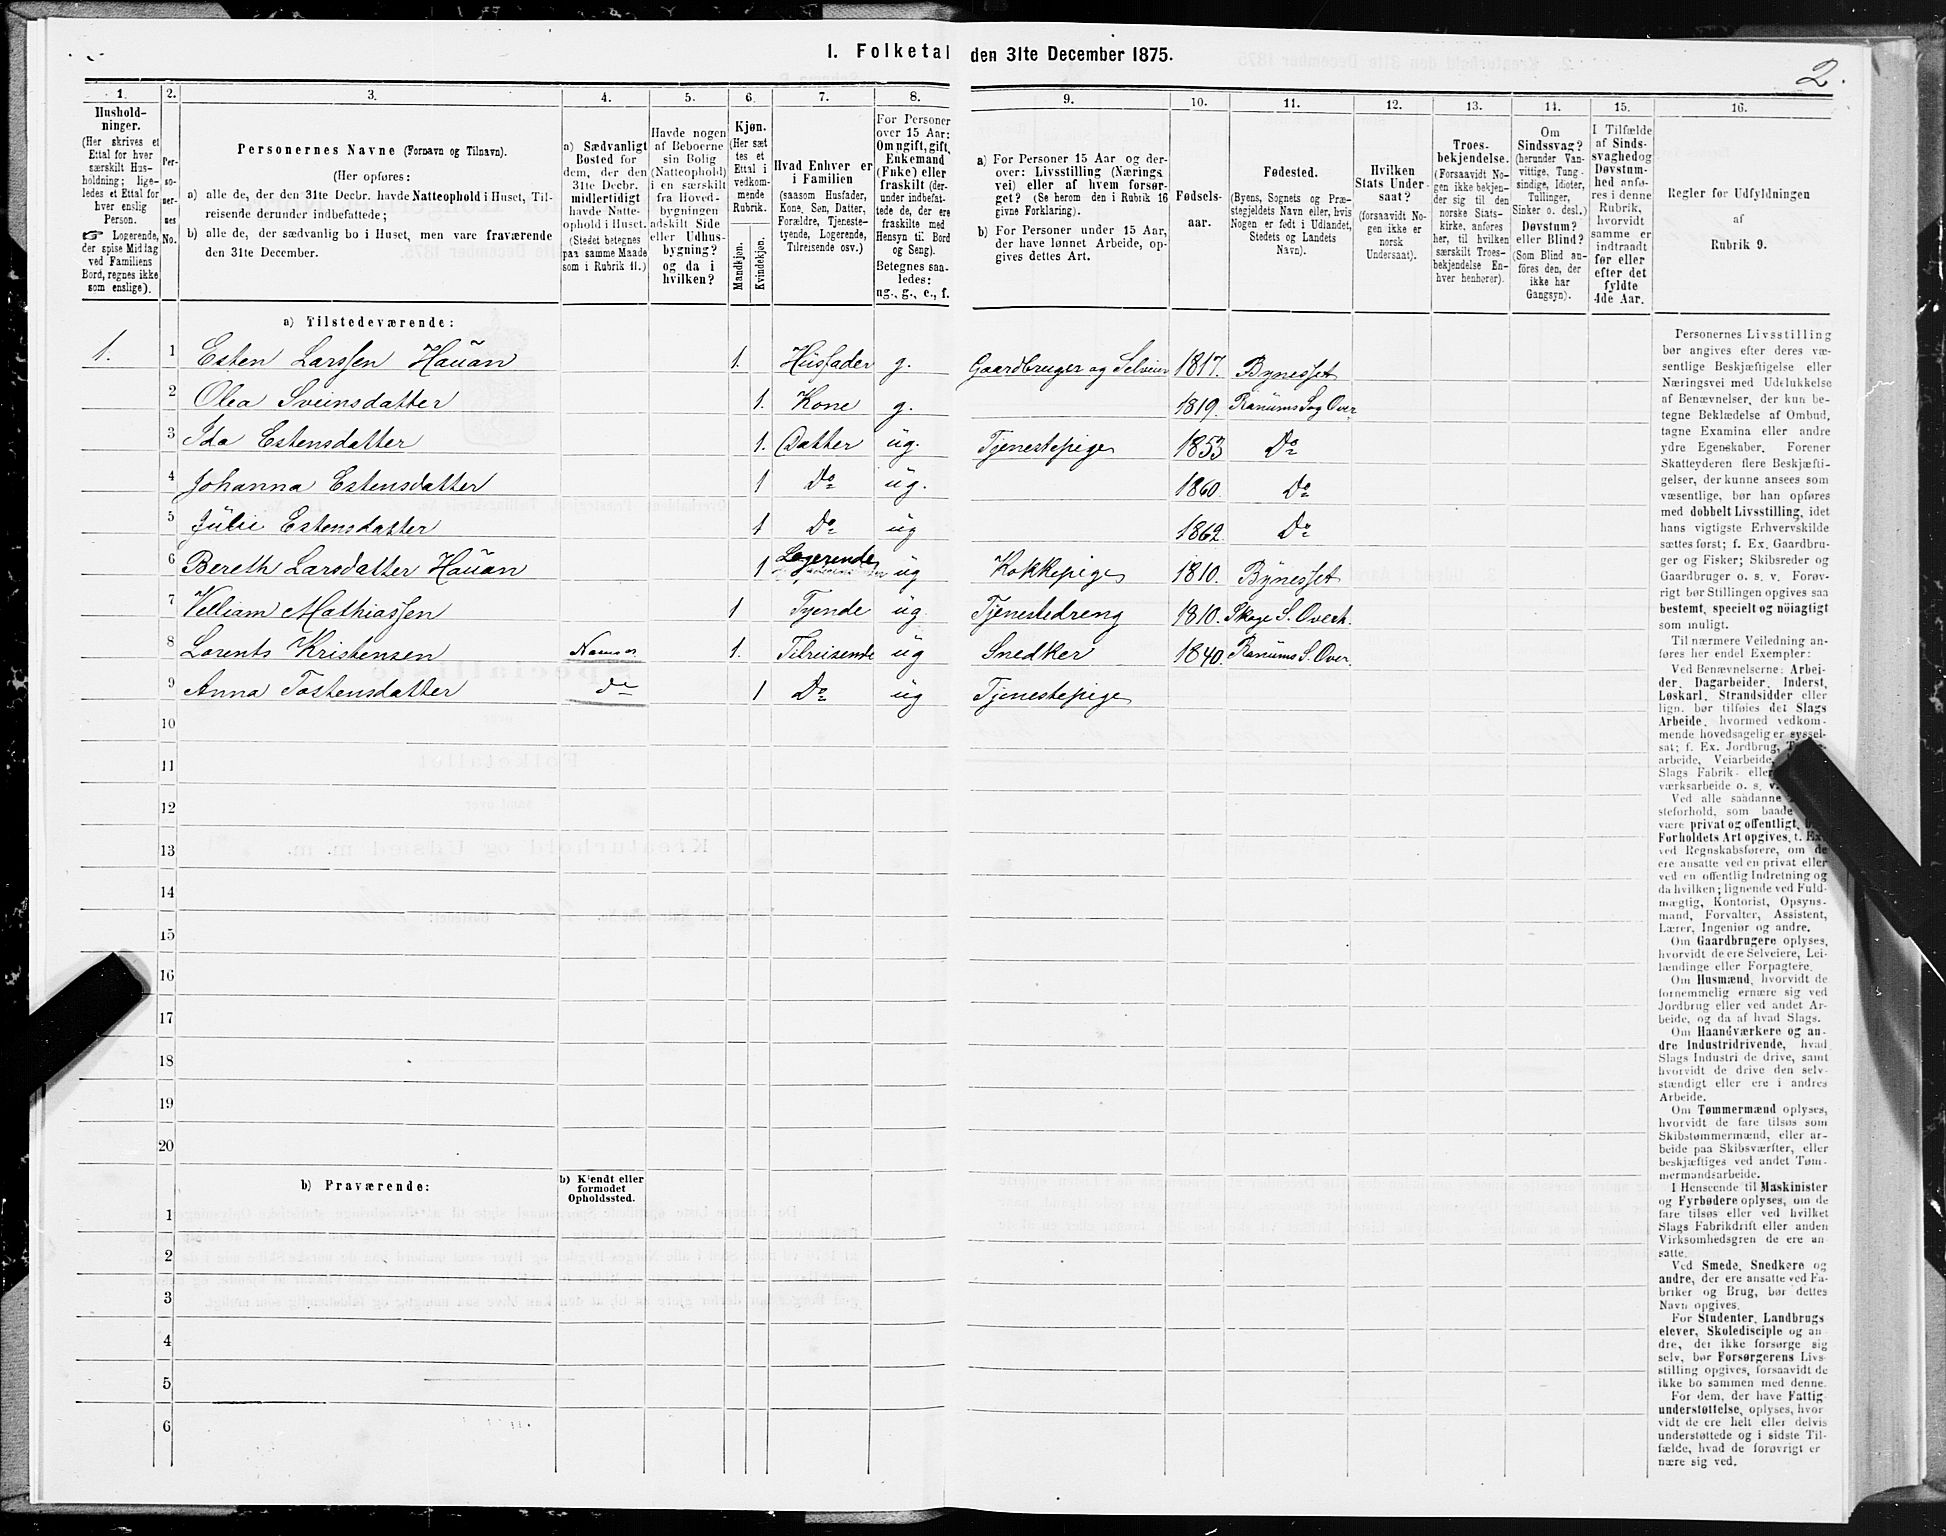 I. Folketal den 31te December 1875.
2.
1.
Hushold-
ninger.
(Her skrives et
Ettal for hver
særskilt Hus-
holdning; lige-
ledes et Ettal for
hver enslig
Person.
☞ Logerende,
der spise Middag
ved Familiens
Bord, regnes ikke
som enslige).
2.
Per-
so-
ner-
nes
No.
3.
Personernes Navne (Fornavn og Tilnavn).
(Her opføres:
a) alle de, der den 31te Decbr. havde Natteophold i Huset, Til-
reisende derunder indbefattede;
b) alle de, der sædvanlig bo i Huset, men vare fraværende
den 31te December.
4.
a) Sædvanligt
Bosted for
dem, der den
31te Decbr.
midlertidigt
havde Natte-
ophold i Huset.
(Stedet betegnes
paa samme Maade
som i Rubrik 11.)
5.
Havde nogen
af Beboerne
sin Bolig
(Natteophold)
i en særskilt
fra Hoved-
bygningen
adskilt Side
eller Udhus-
bygning?
og da i
hvilken?
6.
Kjøn.
(Her sæt
tes et
Ettal i
vedkom-
mende
Rubrik.
Mandkjøn.
Kvindekjøn.
7.
Hvad Enhver er
i Familien
(saasom Husfader,
Kone, Søn, Datter,
Forældre, Tjeneste-
tyende, Logerende,
Tilreisende osv.)
8.
For Personer
over 15 Aar:
Om ugift, gift,
Enkemand
(Enke) eller
fraskilt (der-
under indbefat-
tede de, der ere
fraskilte med
Hensyn til Bord
og Seng).
Betegnes saa-
ledes:
ug., g., e., f.
9.
a) For Personer 15 Aar og der-
over: Livsstilling (Nærings
vei) eller af hvem forsør-
get? (Se herom den i Rubrik 16
givne Forklaring).
b) For Personer under 15 Aar,
der have lønnet Arbeide, op-
gives dettes Art.
10.
Fødsels-
aar.
11.
Fødested.
(Byens, Sognets og Præ-
stegjeldets Navn eller, hvis
Nogen er født i Udlandet,
Stedets og Landets
Navn).
12.
Hvilken
Stats Under-
saat?
(forsaavidt No-
gen ikke er
norsk
Undersaat).
13.
Troes-
bekjendelse.
(Forsaavidt No-
gen ikke bekjen-
der sig til den
norske Stats-
kirke, anføres
her, til hvilken
særskilt Troes-
bekjendelse En-
hver henhører).
14.
Om
Sindssvag?
(herunder Van-
vittige, Tung-
sindige, Idioter,
Tullinger,
Sinker o. desl.)
Døvstum?
eller Blind?
(Som Blind an-
føres den, der
ikke har
Gangsyn).
15.
I Tilfælde
af Sinds-
svaghed og
Døvstum-
hed anfø-
res i denne
Rubrik,
hvorvidt
samme er
indtraadt
før eller
efter det
fyldte
4de Aar.
16.
Regler for Udfyldningen
af
Rubrik 9.
a) Tilstedeværende:
1. 1 Esten Larssen Hauan 1. Husfader g. Gaardbruger og Selveier 1817. Bynesset
2 Olea Sveinsdatter 1. Kone g. 1819. Ranums Sog Over
3 Ida Estensdatter 1. Datter ug. Tjenestepige 1853 Do
4 Johanna Estensdatter 1 Do ug. 1860. Do
5 Julie Estensdatter 1 Do ug 1862. Do
6 Bereth Larsdatter Hauan 1 Logerende ug Kokkepige 1810. Bynesset
7 Velliam Mathiassen 1 Tyende ug. Tjenestedreng 1810. Skage S. Overh.
8 Lorents Kristensen Namsos 1. Tilreisende ug Snedker 1840. Ranums S. Over.
9 Anna Tostensdatter do 1 Do ug Tjenestepige
10
11
12
13
14
15
16
17
18
19
20
b) Fraværende:
b) Kjendt eller
formodet
Opholdssted.
1
2
3
4
5
6
Personernes Livsstilling
bør angives efter deres væ-
sentlige Beskjæftigelse eller
Næringsvei med Udelukkelse
af Benævnelser, der kun be-
tegne Beklædelse af Ombud,
tagne Examina eller andre
ydre Egenskaber. Forener
Skatteyderen flere Beskjæfti-
gelser, der kunne ansees som
væsentlige, bør han opføres
med dobbelt Livsstilling, idet
hans vigtigste Erhvervskilde
sættes først; f. Ex. Gaardbru-
ger og Fisker; Skibsreder og
Gaardbruger o. s. v. Forøv-
rigt bør Stillingen opgives saa
bestemt, specielt og nöiagtigt
som muligt.
Til nærmere Veiledning an-
føres her endel Exempler:
Ved Benævnelserne: Arbei-
der, Dagarbeider, Inderst,
Løskarl, Strandsidder eller
lign. bør tilføies det Slags
Arbeide, hvormed vedkom-
mende hovedsagelig er syssel-
sat; f. Ex. Jordbrug,
arbeide, Veiarbeide,
Slags Fabrik- eller
værksarbeide o. s. v.
Ved alle saadanne
steforhold, som baade
være privat og offentligt,
Forholdets Art opgives, t. Ex.
ved Regnskabsførere, om de
ere ansatte ved en privat eller
ved en offentlig Indretning og
da hvilken; lignende ved Fuld-
mægtig, Kontorist, Opsyns-
mand, Forvalter, Assistent,
Lærer, Ingeniør og andre.
Om Gaardbrugere oplyses,
hvorvidt de ere Selveiere, Lei-
lændinge eller Forpagtere.
Om Husmænd, hvorvidt de
fornemmelig ernære sig ved
Jordbrug eller ved andet Ar-
beide, og da af hvad Slags.
Om Haandværkere og an-
dre Industridrivende, hvad
Slags Industri de drive, samt
hvorvidt de drive den selv-
stændigt eller ere i andres
Arbeide.
Om Tømmermænd oplyses,
hvorvidt de fare tilsøs som
Skibstømmermænd, eller ar-
beide paa Skibsværfter, eller
beskjæftiges ved andet Tøm-
mermandsarbeide.
I Henseende til Maskinister
og Fyrbødere oplyses, om de
fare tilsøs eller ved hvilket
Slags Fabrikdrift eller anden
Virksomhedsgren de ere an-
satte.
Ved Smede, Snedkere og
andre, der ere ansatte ved Fa-
briker og Brug, bør dettes
Navn opgives.
For Studenter, Landbrugs
elever, Skoledisciple og an-
dre, der ikke forsørge sig
selv, bør Forsørgerens Livs-
stilling opgives, forsaavidt de
ikke bo sammen med denne.
For dem, der have Fattig-
understøttelse, oplyses, hvor
vidt de ere helt eller delvis
understøttede og i sidste Til-
fælde, hvad de forøvrigt er
nære sig ved.